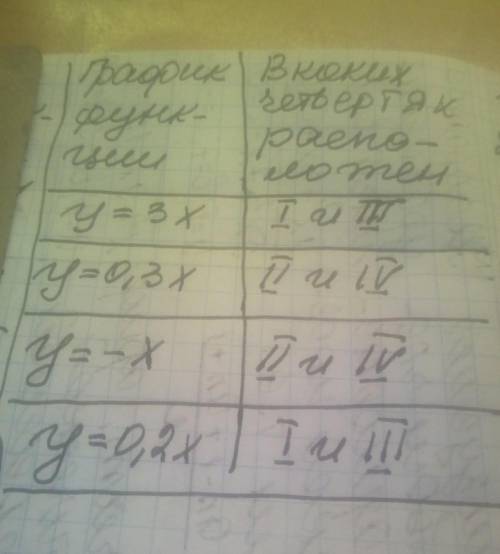 График
функ-
ции
В каких
четвертях
распо-
ложен
y = 3x
I и III
y=0,3x
II и IV
y=-x
II и IV
y=0,2x
I и III